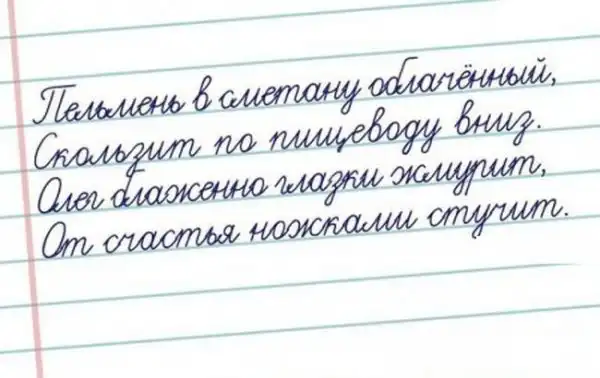 Пельмень в сметану облачённый,
Скользит по пищеводу вниз.
Олег блаженно глазки жмурит,
От счастья ножками стучит.